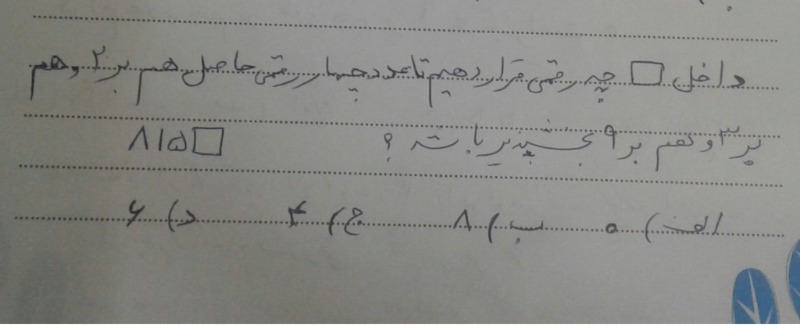 داخل □ چه رقمی قرار دهیم تا عدد چهار رقمی حاصل هم بر ۲ و هم
بر ۳ و هم بر ۹ بخشپذیر باشد ؟ ۸۱۵□
الف) ۰ ب) ۸ ج) ۴ د) ۶